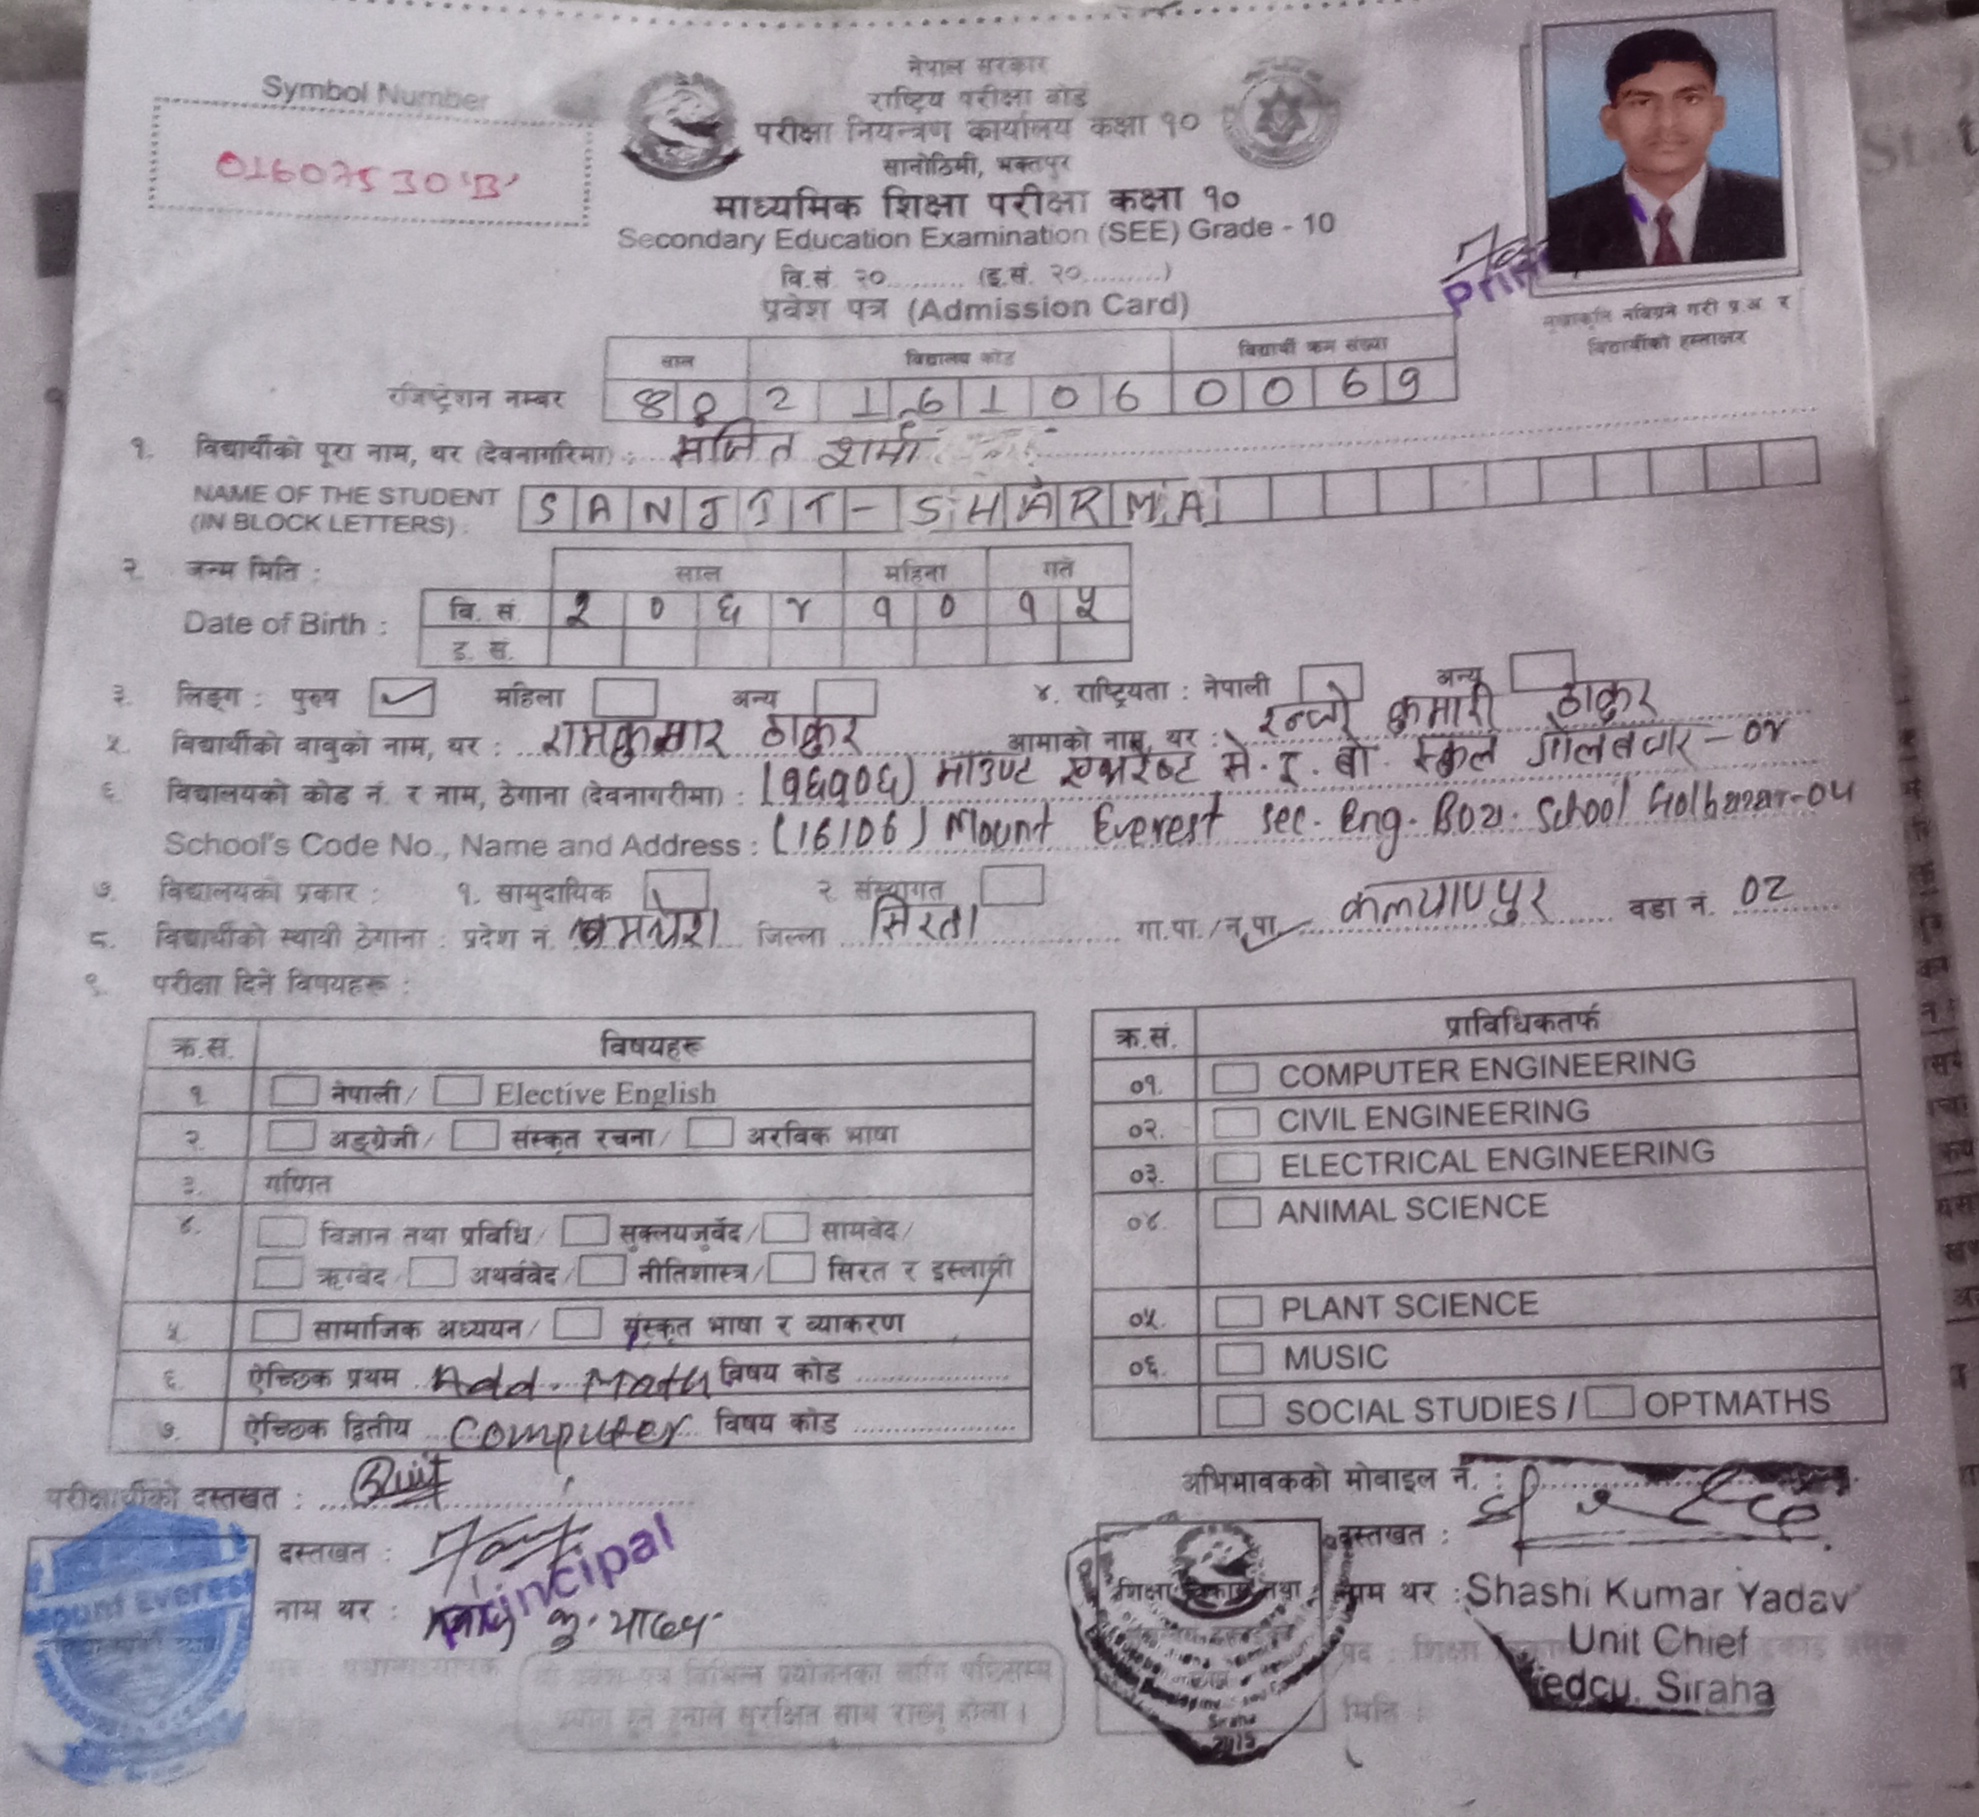 Symbol Number
01607530'B'
नेपाल सरकार
राष्ट्रिय परीक्षा बोर्ड
परीक्षा नियन्त्रण कार्यालय कक्षा १०
सानोठिमी, भक्तपुर
माध्यमिक शिक्षा परीक्षा कक्षा १०
Secondary Education Examination (SEE) Grade - 10
वि.सं. २०.......... (इ.सं. २०..........)
प्रवेश पत्र (Admission Card)
मुखाकृति नबिग्रने गरी प्र.अ. र
विद्यार्थीको हस्ताक्षर
साल विद्यालय कोड विद्यार्थी क्रम संख्या
रजिष्ट्रेशन नम्बर 8 0 2 1 6 1 0 6 0 0 6 9
१. विद्यार्थीको पूरा नाम, थर (देवनागरिमा) : संजित शर्मा
NAME OF THE STUDENT SANJIT-SHARMA
(IN BLOCK LETTERS) :
२. जन्म मिति : साल महिना गते
Date of Birth : वि. सं. २ ० ६ ४ १ ० १ ५
इ. सं.
३. लिङ्ग : पुरुष ✓ महिला अन्य ४. राष्ट्रियता : नेपाली अन्य
५. विद्यार्थीको बाबुको नाम, थर : रामकुमार ठाकुर आमाको नाम, थर : कुमारी ठाकुर
६. विद्यालयको कोड नं. र नाम, ठेगाना (देवनागरीमा) : (१६१०६) माउण्ट एभरेष्ट से. इ. बो. स्कुल गोलबजार-०४
School's Code No., Name and Address : (16106) Mount Everest sec. Eng. School Golbazar-04
७. विद्यालयको प्रकार : १. सामुदायिक २. संस्थागत
८. विद्यार्थीको स्थायी ठेगाना : प्रदेश नं. जिल्ला सिरहा गा.पा./न.पा. कल्याणपुर वडा नं. 02
९. परीक्षा दिने विषयहरू :
क्र.सं. विषयहरू
१. नेपाली/ Elective English
२. अङ्ग्रेजी/ संस्कृत रचना/ अरविक भाषा
३. गणित
४. विज्ञान तथा प्रविधि/ सुक्लयजुर्वेद/ सामवेद/
ऋग्वेद/ अथर्ववेद/ नीतिशास्त्र/ सिरत र इस्लामी
५. सामाजिक अध्ययन/ संस्कृत भाषा र व्याकरण
६. ऐच्छिक प्रथम Add. Math विषय कोड ..........
७. ऐच्छिक द्वितीय Computer विषय कोड ..........
क्र.सं. प्राविधिकतर्फ
०१. COMPUTER ENGINEERING
०२. CIVIL ENGINEERING
०३. ELECTRICAL ENGINEERING
०४. ANIMAL SCIENCE
०५. PLANT SCIENCE
०६. MUSIC
SOCIAL STUDIES / OPTMATHS
परीक्षार्थीको दस्तखत :
अभिभावकको मोबाइल नं. :
दस्तखत :
Principal
नाम थर :
Mount Everest
दस्तखत :
नाम थर : Shashi Kumar Yadav
Unit Chief
edcu. Siraha
मिति :
यो प्रवेश पत्र विभिन्न प्रयोजनका लागि पछिसम्म
प्रयोग हुने हुनाले सुरक्षित साथ राख्नु होला ।
Siraha